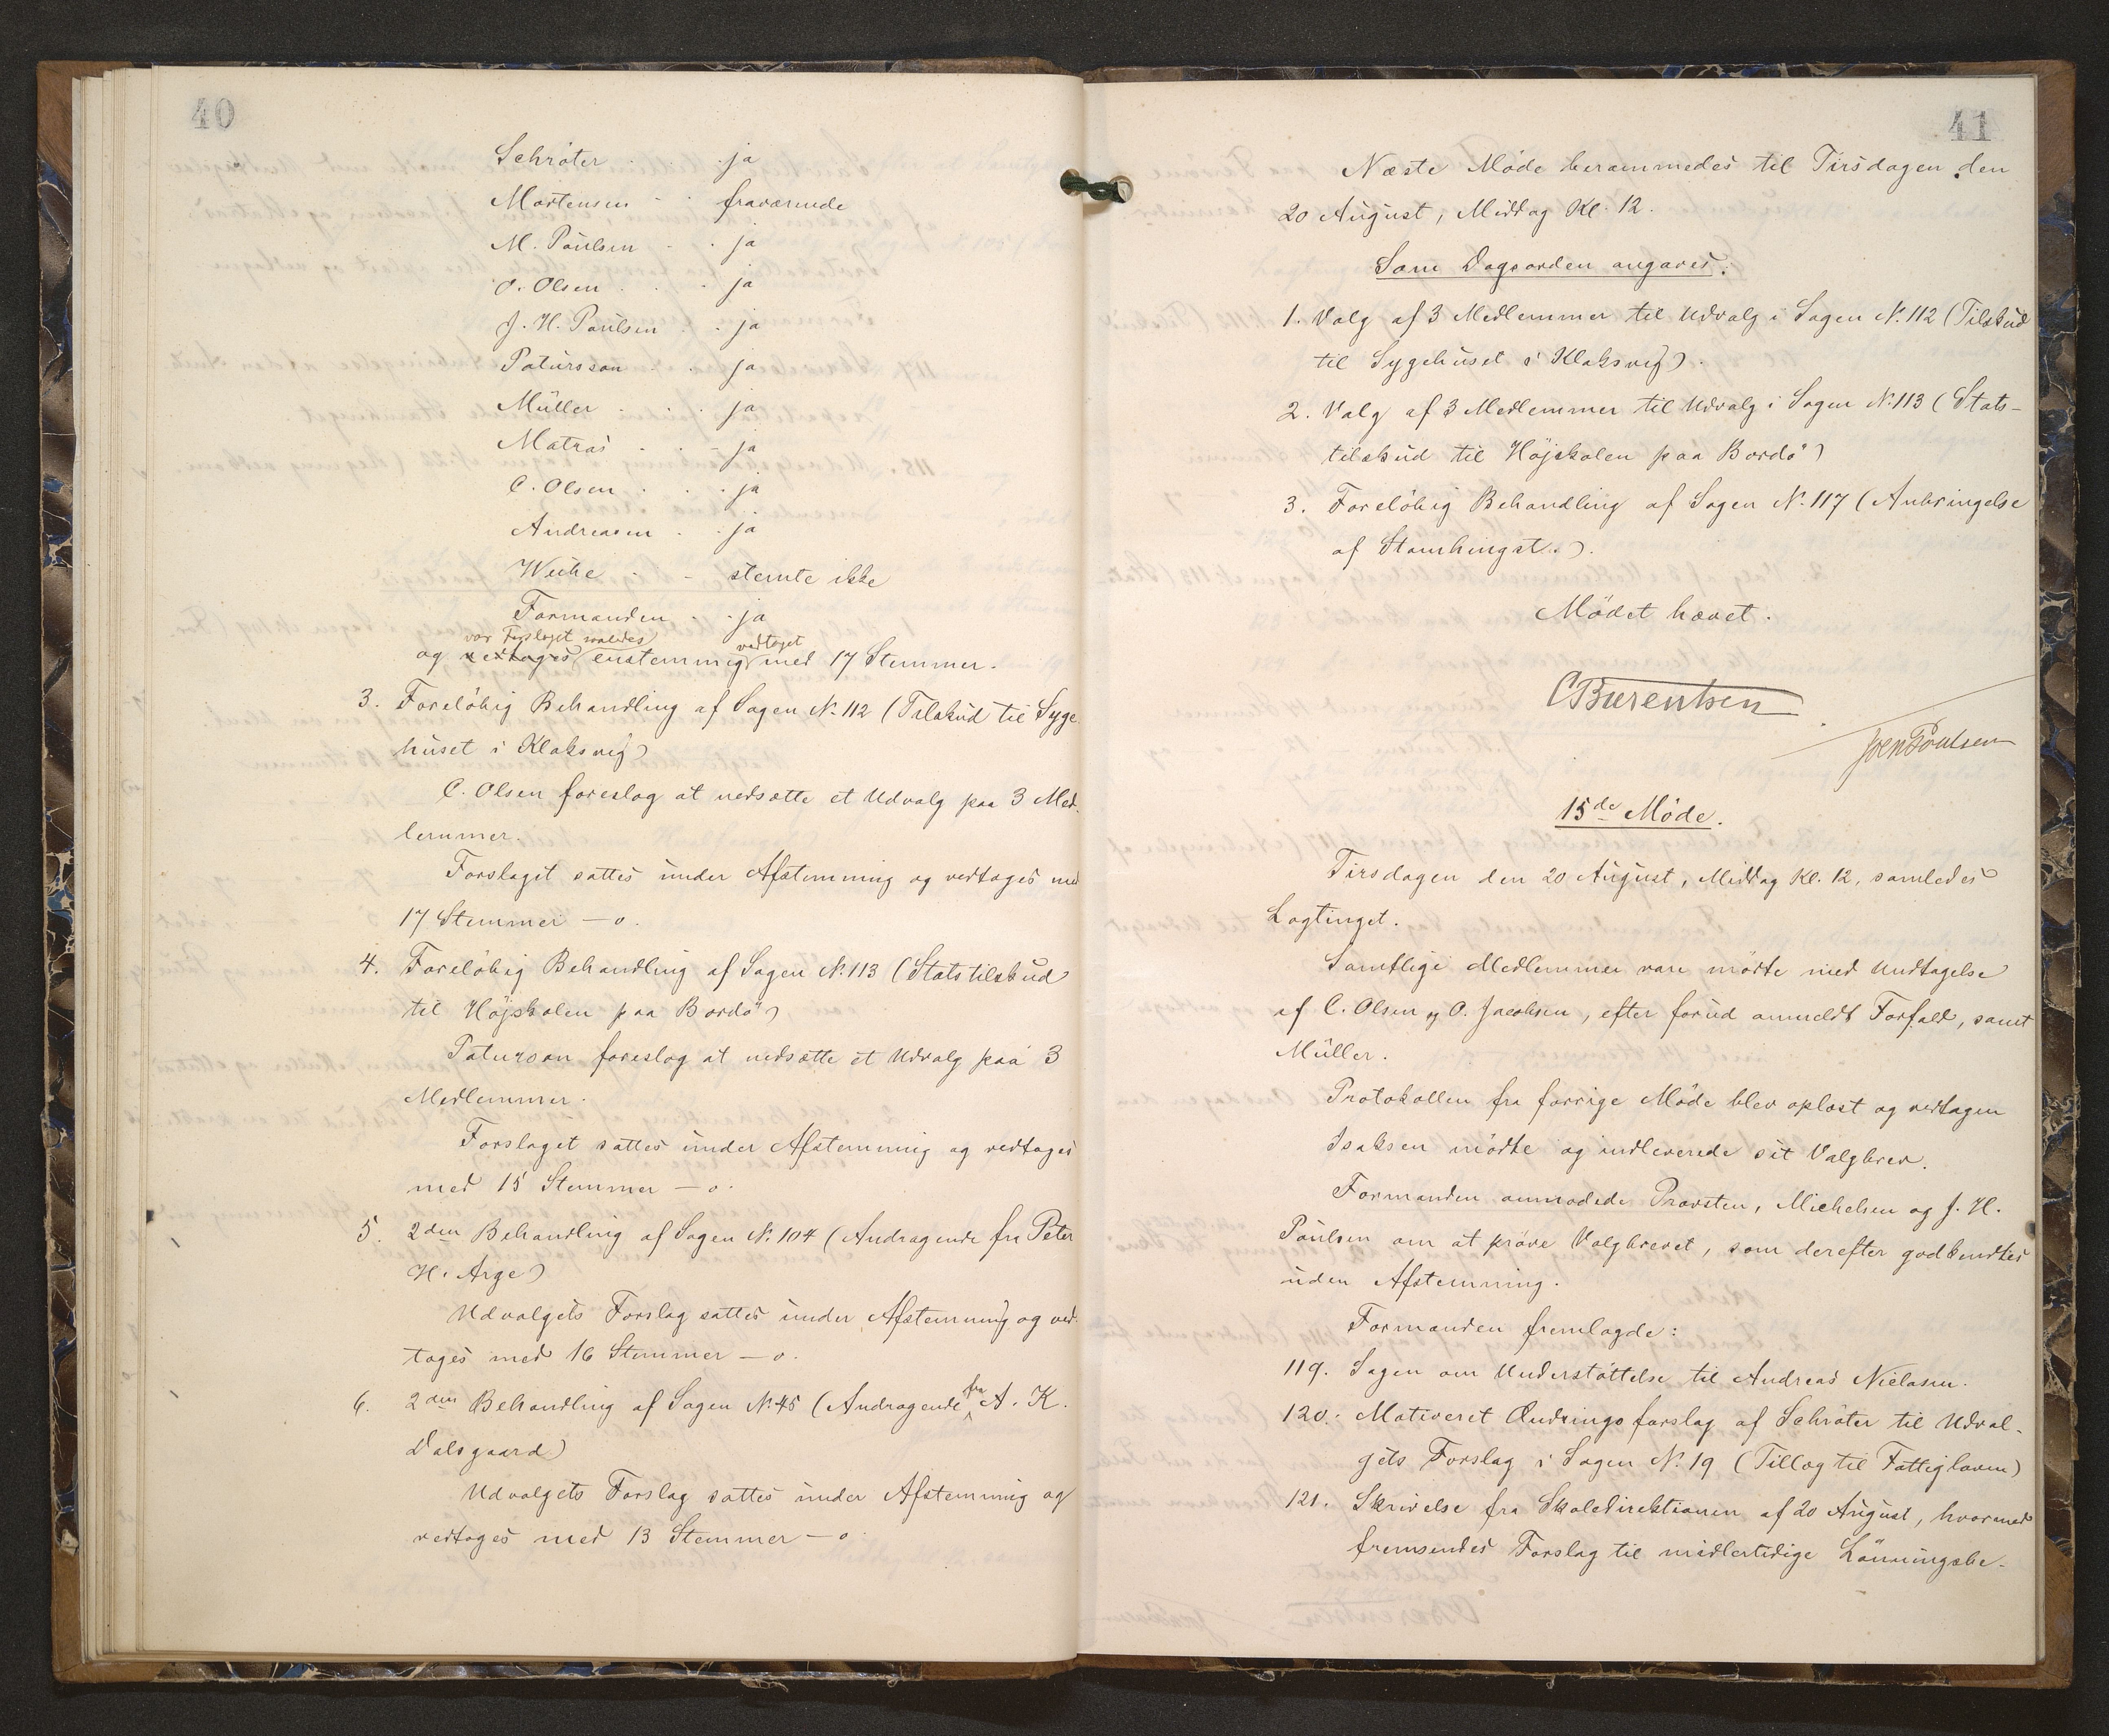 40
Schröter . . . ja
Mortensen - - fraværende
M. Poulsen . . ja
O. Olsen . . . ja
J. H. Poulsen . . ja
Patursson . . ja
Müller . . . ja
Matras . . - ja
C. Olsen . . . ja
Andreasen . . ja
Weihe . - stemte ikke
Formanden . . ja
var Forslaget saaledes vedtaget
og vedtoges enstemmig med 17 Stemmer.
3. Foreløbig Behandling af Sagen N. 112 (Tilskud til Syge-
huset i Klaksvig)
C. Olsen foreslog at nedsætte et Udvalg paa 3 Med-
lemmer.
Forslaget sattes under Afstemning og vedtoges med
17 Stemmer — o.
4. Foreløbig Behandling af Sagen N. 113 (Statstilskud
til Højskolen paa Bordö)
Patursson foreslog at nedsætte et Udvalg paa 3
Medlemmer.
Forslaget sattes under Afstemning og vedtoges
med 15 Stemmer — o.
5. 2den Behandling af Sagen N. 104 (Andragende fra Peter
H. Arge)
Udvalgets Forslag sattes under Afstemning og ved-
toges med 16 Stemmer — o.
6. 2den Behandling af Sagen N. 45 (Andragende fra A. K.
Dalsgaard)
Udvalgets Forslag sattes under Afstemning og
vedtoges med 13 Stemmer — o
41
Næste Møde berammedes til Tirsdagen den
20 August, Middag Kl. 12.
Som Dagsorden angaves:
1. Valg af 3 Medlemmer til Udvalg i Sagen N. 112 (Tilskud
til Sygehuset i Klaksvig).
2. Valg af 3 Medlemmer til Udvalg i Sagen N. 113 (Stats-
tilskud til Højskolen paa Bordö)
3. Foreløbig Behandling af Sagen N. 117 (Anbringelse
af Stamhingst.).
Mødet hævet.
CBærentsen
Joen Poulsen
15de Møde.
Tirsdagen den 20 August, Middag Kl. 12, samledes
Lagtinget.
Samtlige Medlemmer vare mødte med Undtagelse
af C. Olsen og O. Jacobsen, efter forud anmeldt Forfald, samt
Müller.
Protokollen fra forrige Møde blev oplæst og vedtagen
Isaksen mødte og indleverede sit Valgbrev.
Formanden anmodede Provsten, Michelsen og J. H.
Poulsen om at prøve Valgbrevet, som derefter godkendtes
uden Afstemning.
Formanden fremlagde:
119. Sagen om Understøttelse til Andreas Nielasen.
120. Motiveret Ændringsforslag af Schröter til Udval-
gets Forslag i Sagen N. 19 (Tillæg til Fattigloven)
121. Skrivelse fra Skoledirektionen af 20 August, hvormed
fremsendes Forslag til midlertidige Lønningsbe-